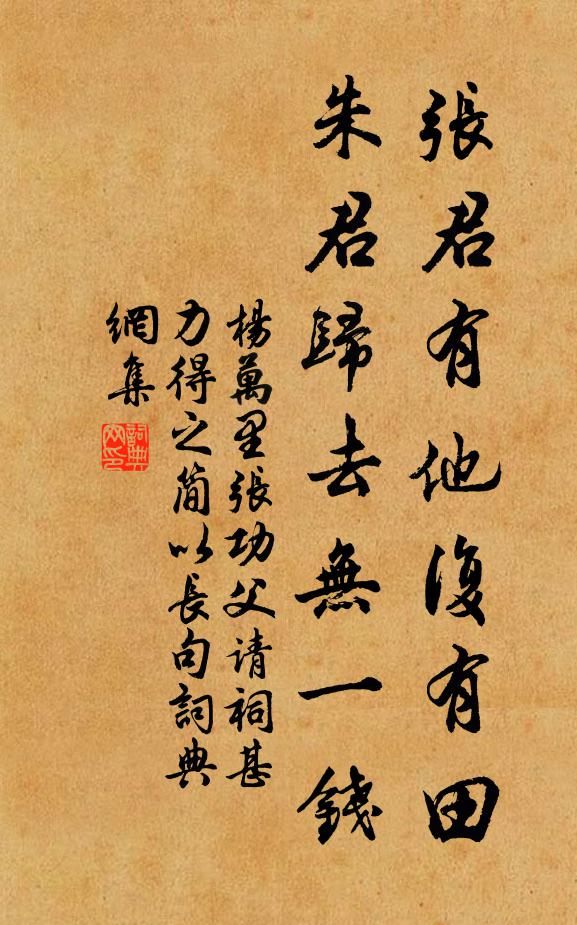 張君有他復有田
朱君歸去無一錢
楊萬里張功父请祠甚
力得之简以长句詞典
網集
詞典
网印